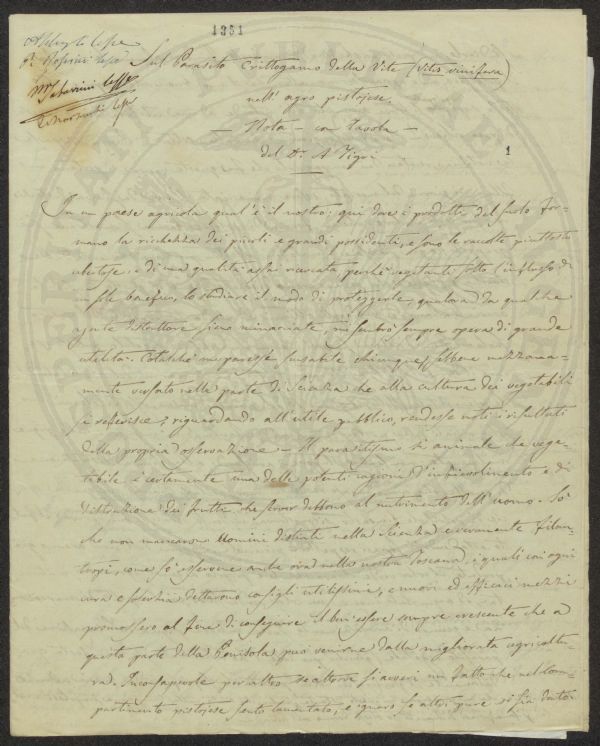 1351
Sul Parasito Crittogamo della Vite (Vitis vinifera)
nell'agro pistojese.
— Nota — con tavola —
del Dr. A Tigri
1
In un paese agricola qual'è il nostro: qui dove i prodotti del suolo for-
mano la richezza dei piccoli e grandi possidenti, e sono le raccolte piuttosto
e di una qualità assai ricercata, perché vegetanti sotto l'influsso di
un sole benefico, lo studiare il modo di proteggerle, qualora da qualche
agente distruttore sieno minacciate, mi sembrò sempre opera di grande
utilità. Cotalché mi paresse scusabile chiunque, sebbene mezzana-
mente versato nella parte di Scienza che alla cultura dei vegetabili
si referisce, riguardando all'utile pubblico, rendesse noti i risultati
della propria osservazione — Il parasitismo sì animale che vege-
tabile è certamente una delle potenti cagioni d'imbiosolimento e di
distruzione dei frutti, che servir debbono al nutrimento dell'uomo. So
che non mancarono Uomini distinti nella Scienza e veramente filan-
tropi, come so esservene anche ora nella nostra Toscana, i quali con ogni
cura e solerzia dettarono consigli utilissimi, e nuovi ed efficaci mezzi
promossero al fine di conseguire il ben'essere sempre crescente che a
questa parte della Penisola può venirne dalla migliorata agricoltu-
ra. Inconsapevole peraltro se altrove siavveri un fatto che nel Com-
partimento pistojese sento lamentato, e ignaro se altri pure si sia